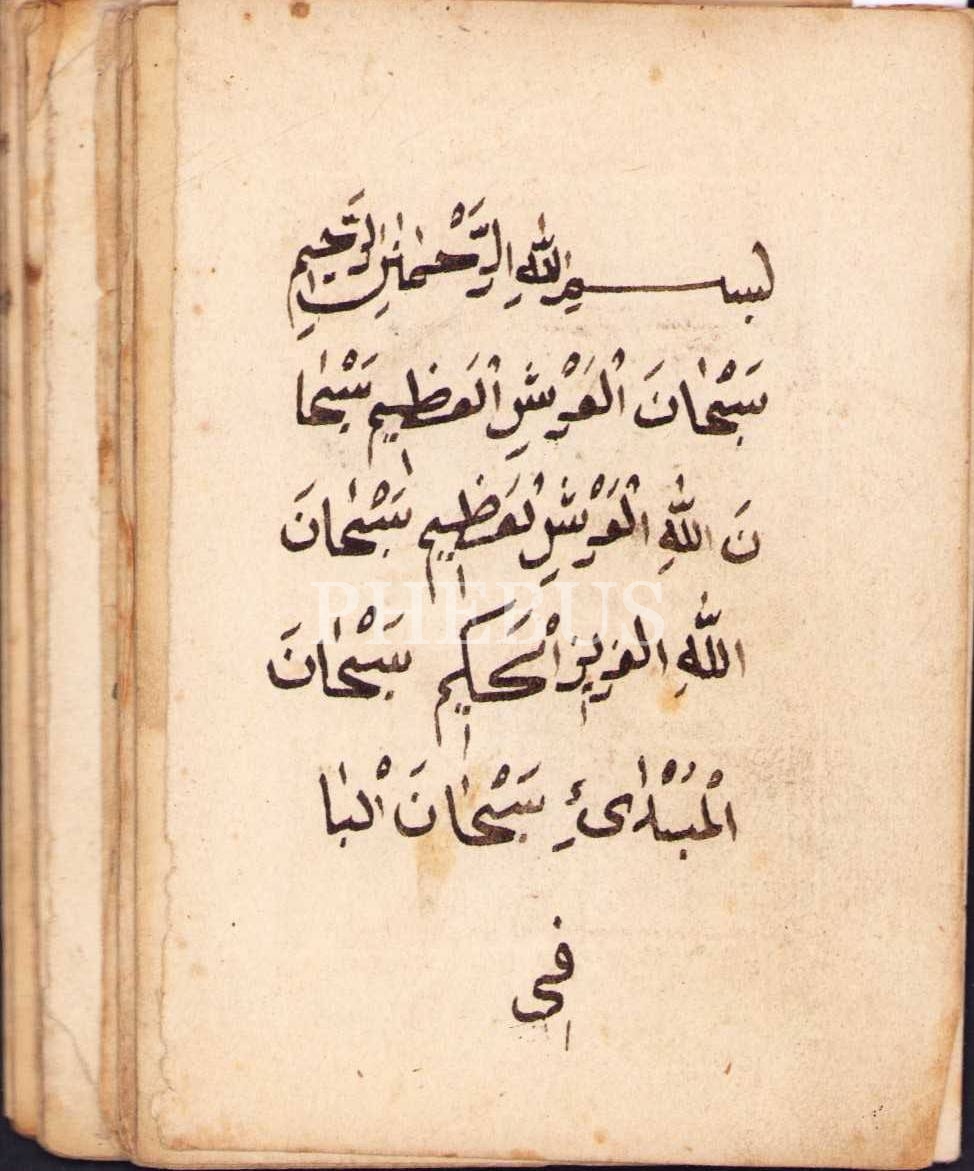 بسم الله الرحمن الرحيم
سبحان العرش العظيم سبحا
ن الله العرش لعظيم سبحان
PHEBUS
الله العزيز الحكيم سبحان
المبتدائ سبحان البا
في